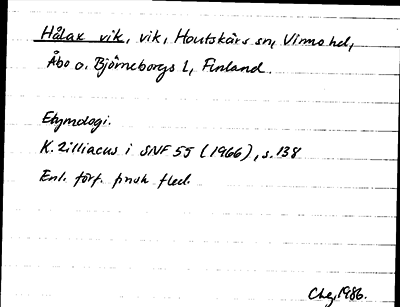 Hålax vik, vik, Houtskärs sn, Virmo hd,
Åbo o. Björneborgs l, Finland.
Etymologi.
K. Zilliacus i SNF 55 (1966), s. 138
Enl. förf. finsk fled.
1986.